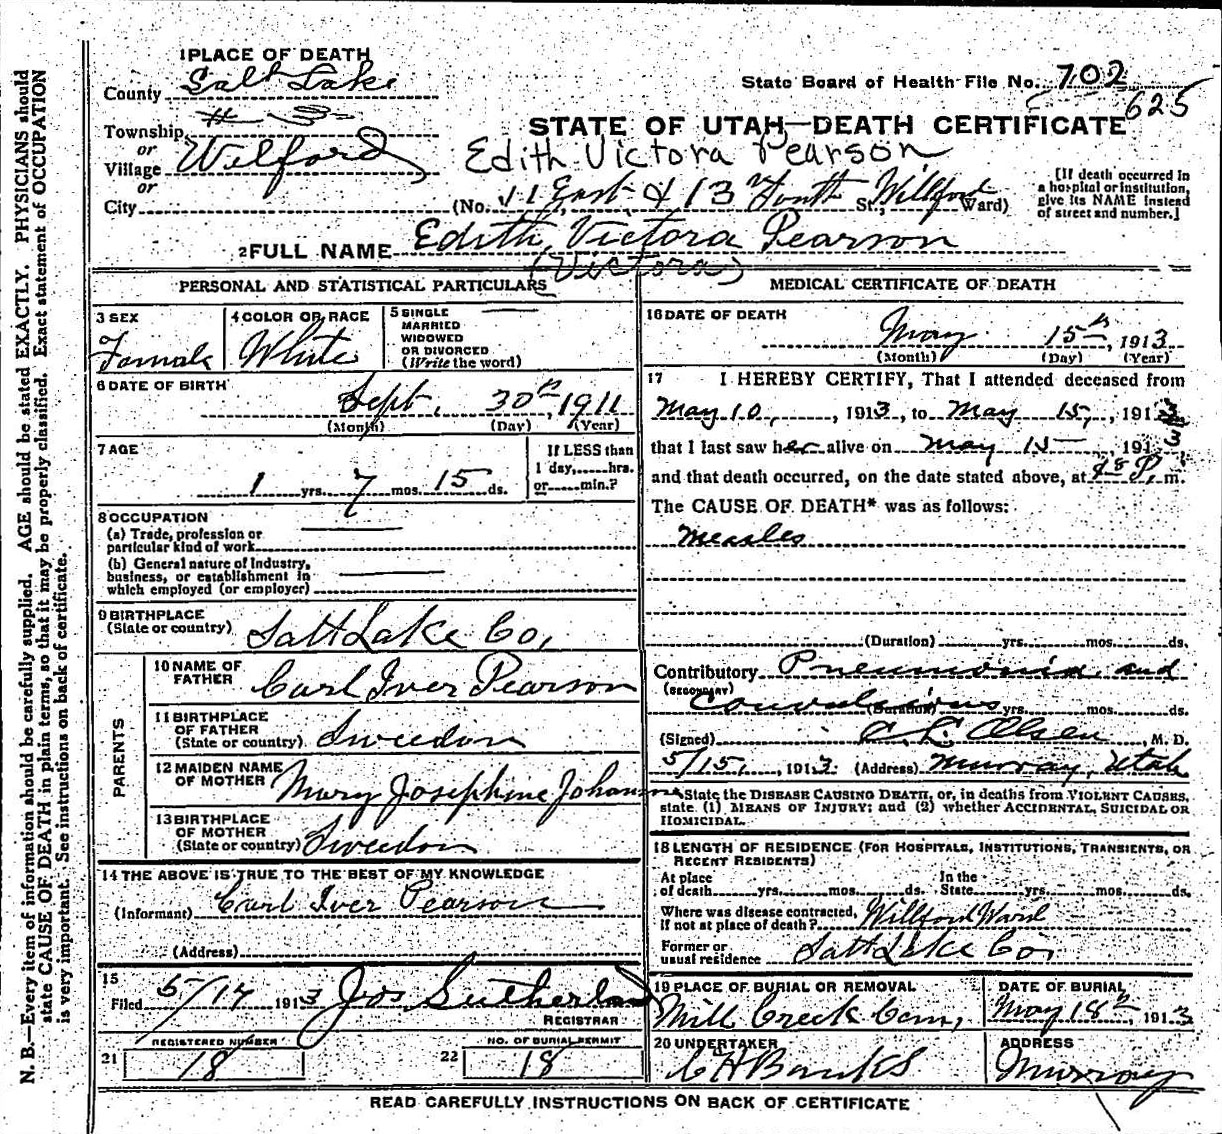 1 PLACE OF DEATH
County Salt Lake
State Board of Health File No. 702
625
Township # 3
or
Village Wilford
or
City
STATE OF UTAH—DEATH CERTIFICATE
Edith Victora Pearson
(No. 11 East & 13 South St., Willford Ward)
[If death occurred in
a hospital or institution,
give its NAME instead
of street and number.]
2 FULL NAME Edith Victora Pearson
(Victora)
PERSONAL AND STATISTICAL PARTICULARS
3 SEX
Female
4 COLOR OR RACE
White
5 SINGLE
MARRIED
WIDOWED
OR DIVORCED
(Write the word)
6 DATE OF BIRTH
Sept. 30th, 1911
(Month) (Day) (Year)
7 AGE
1 yrs. 7 mos. 15 ds.
If LESS than
1 day, hrs.
or min.?
8 OCCUPATION
(a) Trade, profession or
particular kind of work
(b) General nature of Industry,
business, or establishment in
which employed (or employer)
9 BIRTHPLACE
(State or country) Salt Lake Co,
PARENTS
10 NAME OF
FATHER Carl Iver Pearson
11 BIRTHPLACE
OF FATHER
(State or country) Sweedon
12 MAIDEN NAME
OF MOTHER Mary Josephine
13 BIRTHPLACE
OF MOTHER
(State or country) Sweedon
14 THE ABOVE IS TRUE TO THE BEST OF MY KNOWLEDGE
(Informant) Carl Iver Pearson
(Address)
15
Filed 5/17 1913 Jos Sutherland
REGISTRAR
21 REGISTERED NUMBER
18
22 NO. OF BURIAL PERMIT
18
MEDICAL CERTIFICATE OF DEATH
16 DATE OF DEATH
May 15th, 1913
(Month) (Day) (Year)
17 I HEREBY CERTIFY, That I attended deceased from
May 10, 1913, to May 15, 1913
that I last saw her alive on May 15 1913
and that death occurred, on the date stated above, at P. m.
The CAUSE OF DEATH* was as follows:
Measles
(Duration) yrs. mos. ds.
Contributory Pneumonia and
(SECONDARY)
Convulsions (Duration) yrs. mos. ds.
(Signed) C. L. Olsen, M. D.
5/15, 1913. (Address) Murray, Utah
*State the DISEASE CAUSING DEATH, or, in deaths from VIOLENT CAUSES,
state (1) MEANS OF INJURY; and (2) whether ACCIDENTAL, SUICIDAL OR
HOMICIDAL.
18 LENGTH OF RESIDENCE (FOR HOSPITALS, INSTITUTIONS, TRANSIENTS, OR
RECENT RESIDENTS)
At place
of death yrs. mos. ds.
In the
State yrs. mos. ds.
Where was disease contracted,
If not at place of death? Willford Ward
Former or
usual residence Salt Lake Co,
19 PLACE OF BURIAL OR REMOVAL
Mill Creek Cem,
DATE OF BURIAL
May 18th, 1913
20 UNDERTAKER
C H Banks
ADDRESS
Murray
READ CAREFULLY INSTRUCTIONS ON BACK OF CERTIFICATE
N. B.—Every item of information should be carefully supplied. AGE should be stated EXACTLY. PHYSICIANS should
state CAUSE OF DEATH in plain terms, so that it may be properly classified. Exact statement of OCCUPATION
is very important. See instructions on back of certificate.